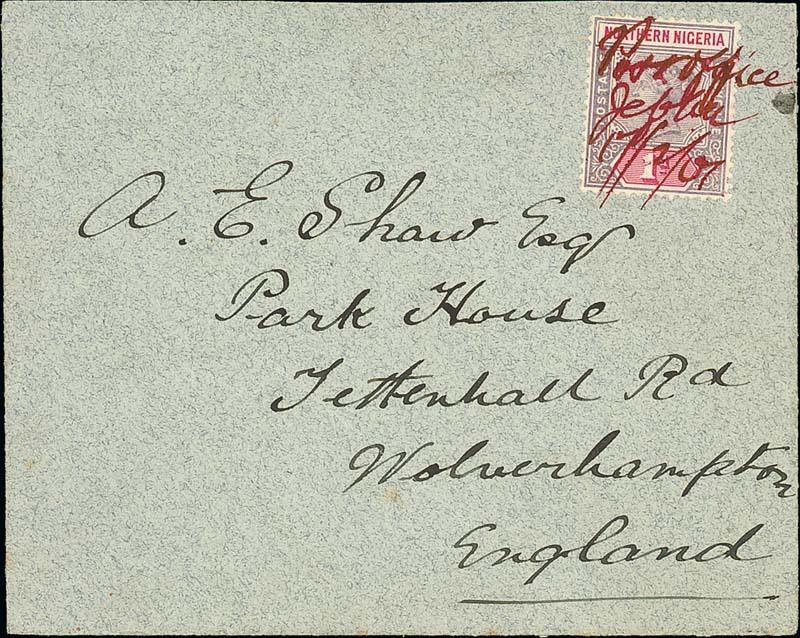 NORTHERN NIGERIA
POSTAGE
Post office
Jebba
1d
A. E. Shaw Esq
Park House
Tettenhall Rd
Wolverhampton
England